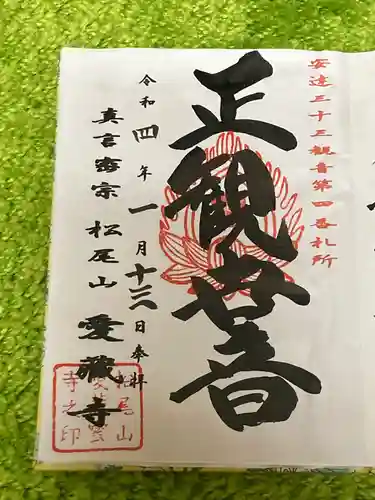 安達三十三観音第四番札所
正観世音
令和四年一月十三日奉拝
真言密宗 松尾山 愛藏寺
松尾山
愛藏
寺之印